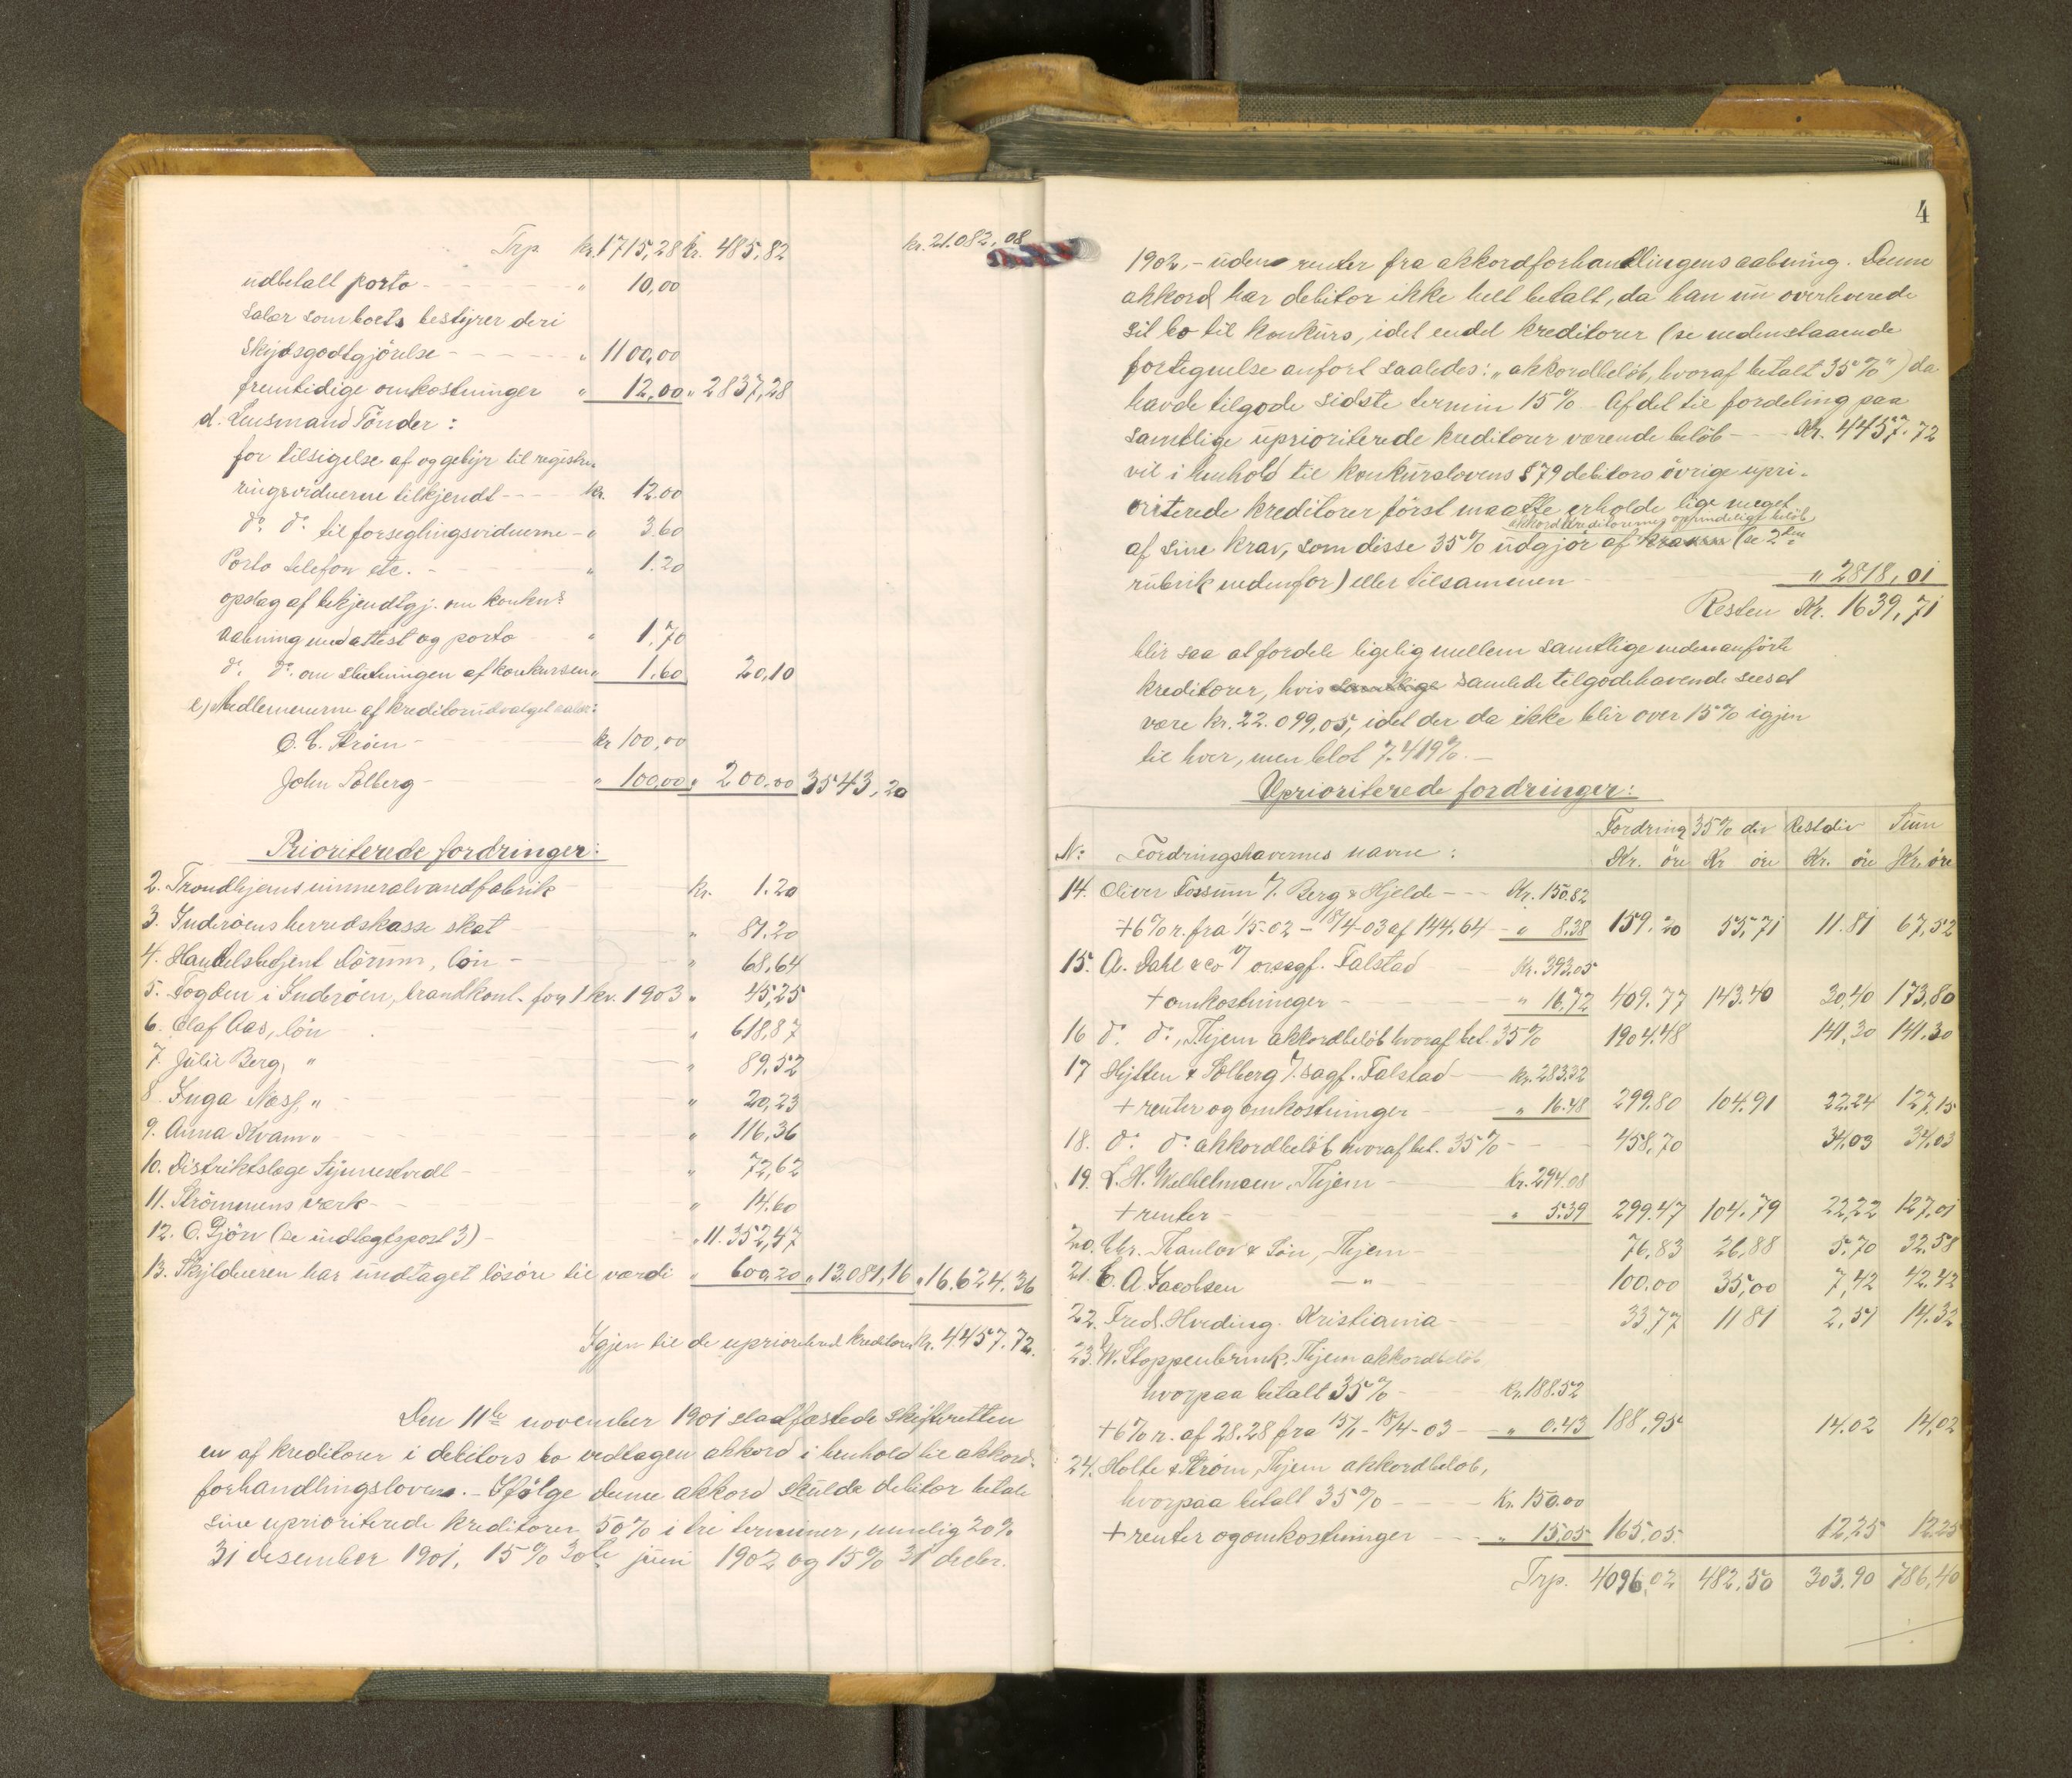 Trp kr. 1715,28 kr. 485,82 kr. 21.082,08
udbetalt porto - " 10,00
Salær som boets bestyrer deri
skydsgodtgjörelse - " 1100,00
fremtidige omkostninger " 12,00 " 2837,28
d. Lensmand Tönder:
for tilsigelse af og gebyr til registre-
ringsvidnerne tilkjendt - kr. 12.00
do do til forseglingsvidnerne - " 3.60
Porto telefon etc. - " 1.20
opslag af bekjendtgj. om konkurs
aabning med attest og porto " 1.70
do do om slutningen af konkursen " 1.60 20,10
e, Medlemmerne af kreditorudvalget salær:
O. C. Ström - kr 100,00
John Solberg - " 100,00 " 200,00 3543,20
Prioriterede fordringer:
2. Trondhjems mineralvandfabrik kr. 1.20
3. Inderøens herredskasse skat " 81.20
4. Handelsbetjent Dörum, lön - " 68,64
5. Fogden i Inderøen, brandkont. for 1 kv. 1903 " 45,25
6. Olaf Aas, lön " 618,87
7. Julie Berg, " " 89,52
8. Inga Næss, " " 20,23
9. Anna Kvam " " 116,36
10. Distriktslæge Synnestvedt - " 72,62
11. Strömmens værk - " 14.60
12. O. Gjörv (se indtægtspost 3) - " 11.352,47
13. Skyldneren har undtaget lösöre til værdi " 600,20 " 13.081,16 " 16.624.36
Igjen til de uprioriterede kreditorer kr. 4457.72.
Den 11te november 1901 stadfæstede skifteretten
en af kreditorer i debitors bo vedtagen akkord i henhold til akkord-
forhandlingsloven. - Ifölge denne akkord skulde debitor betale
sine uprioriterede kreditorer 50% i tre terminer, nemlig 20%
31 desember 1901, 15% 30te juni 1902 og 15% 31 decbr.
4
1902, - uden renter fra akkordforhandlingens aabning. Denne
akkord har debitor ikke helt betalt, da han nu overleverede
sit bo til konkurs, idet endel kreditorer (se nedenstaaende
fortegnelse anfört saaledes: "akkordbelöb, hvoraf betalt 35%") da
havde tilgode sidste termin 15% - Af det til fordeling paa
samtlige uprioriterede kreditorer værende belöb - Kr. 4457.72
vil i henhold til konkurslovens § 79 debitors övrige upri-
oriterede kreditorer først maatte erholde lige meget
akkordkreditorernes oprindelige belöb
af sine krav, som disse 35% udgjör af kraven (se 2den
rubrik nedenfor) eller tilsammen - " 2818,01
Resten Kr. 1639,71
blir saa at fordele ligelig mellem samtlige nedenanförte
kreditorer, hvis samtlige samlede tilgodehavende sees at
være kr. 22.099,05, idet der da ikke blir over 15% igjen
til hver, men blot 7.419%. -
Uprioriterede fordringer:
Fordring 35% div Restdiv Sum
No: Fordringshavernes navne: Kr. öre Kr öre Kr. öre Kr. öre
14. Oliver Fossum v/ Berg & Hjelde - Kr. 150.82
+ 6% r. fra 1/5-02 - 18/4-03 af 144.64 - " 8.38 159.20 55,71 11.81 67,52
15. A. Dahl & co v/ orsagf. Falstad Kr. 393.05
+ omkostninger - " 16.72 409.77 143.40 30,40 173,80
16 do do, Thjem akkordbelöb hvoraf bet. 35% 1904.48 141,30 141.30
17 Hytten & Solberg v/ sagf. Falstad - Kr. 283.32
+ renter og omkostninger - " 16.48 299.80 104.91 22.24 127,15
18. do do akkordbelöb hvoraf bet. 35% - 458,70 34.03 34,03
19. L. H. Wilhelmsen, Thjem - Kr. 294.08
+ renter - " 5.39 299.47 104.79 22,22 127,01
20. Chr. Thaulow & Sön, Thjem - 76,83 26,88 5.70 32.58
21. C. A. Jacobsen - " 100.00 35,00 7,42 42.42
22. Fred. Hveding. Kristiania - 33,77 11 81 2.51 14.32
23. W. Stoppenbrink, Thjem akkordbelöb
hvorpaa betalt 35% - Kr. 188.52
+ 6% r. af 28.28 fra 15/1 - 18/4-03 - " 0.43 188,95 14.02 14,02
24. Holte & Ström, Thjem akkordbelöb,
hvorpaa betalt 35% - Kr. 150.00
+ renter og omkostninger - " 15,05 165,05. 12,25 12.25
Trp. 4096,02 482,50 303.90 786,40